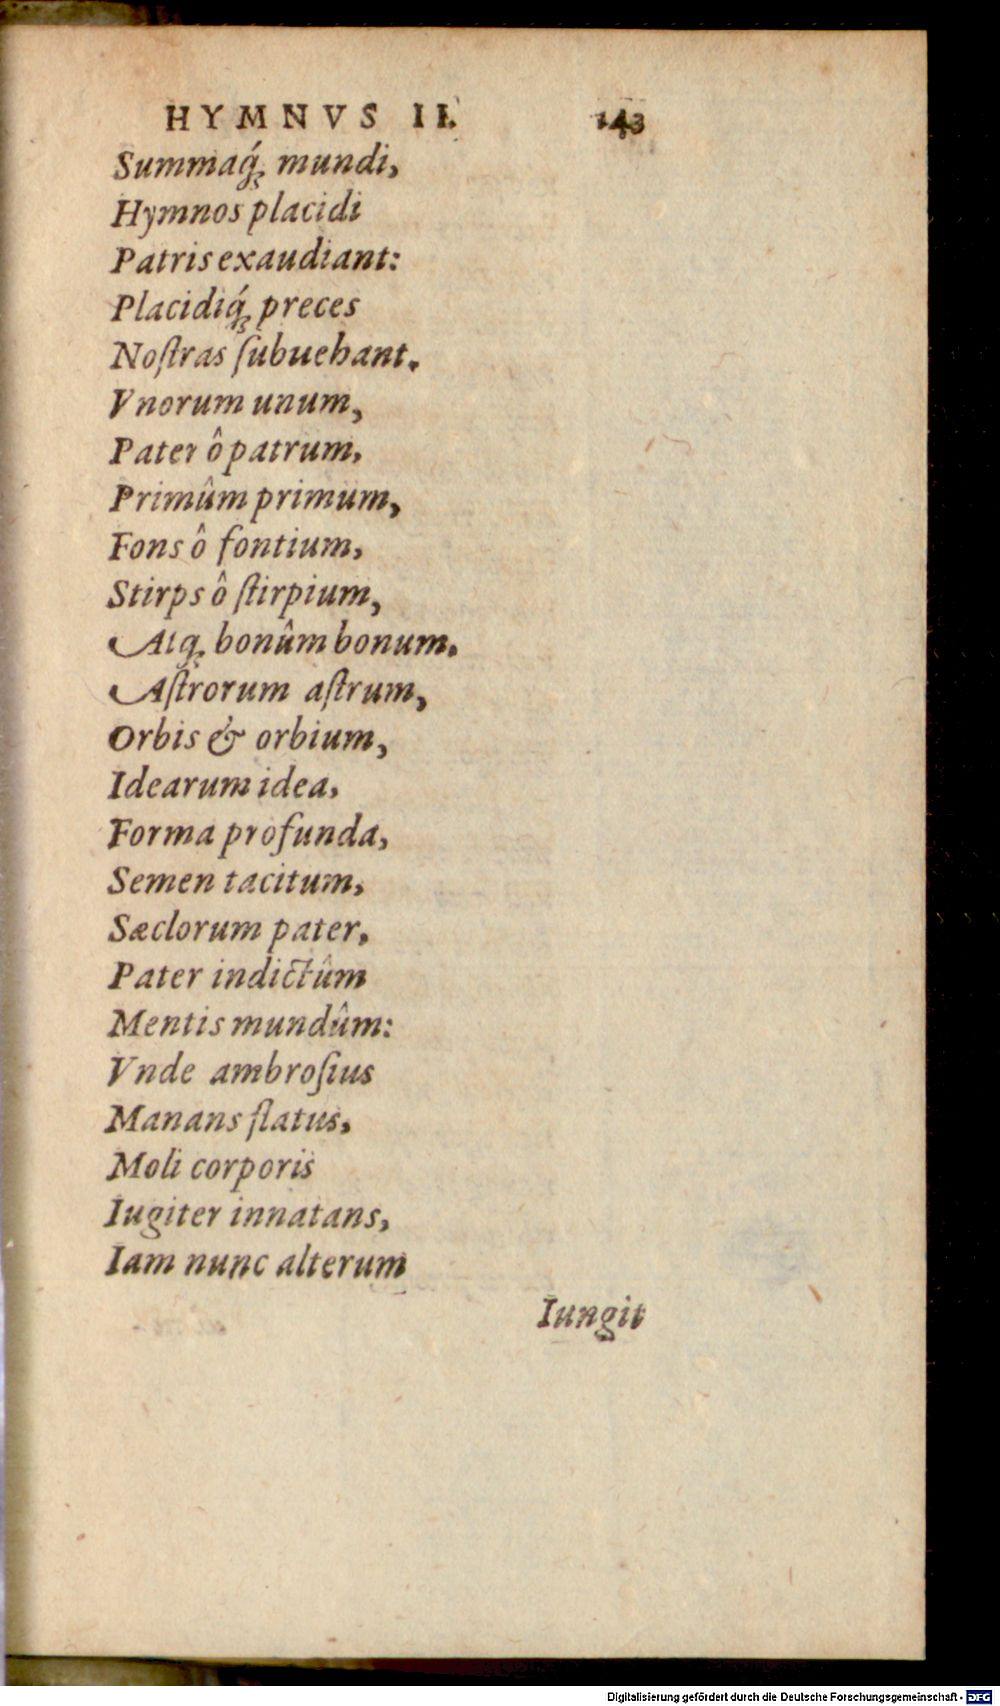 HYMNVS II. 143
Summaq́; mundi,
Hymnos placidi
Patris exaudiant:
Placidiq́; preces
Noſtras ſubuehant.
Vnorum unum,
Pater ô patrum,
Primûm primum,
Fons ô fontium,
Stirps ô ſtirpium,
Atq; bonûm bonum.
Aſtrorum aſtrum,
Orbis & orbium,
Idearum idea,
Forma profunda,
Semen tacitum,
Sæclorum pater,
Pater indictûm
Mentis mundûm:
Vnde ambroſius
Manans flatus,
Moli corporis
Iugiter innatans,
Iam nunc alterum
Iungit
Digitalisierung gefördert durch die Deutsche Forschungsgemeinschaft - DFG